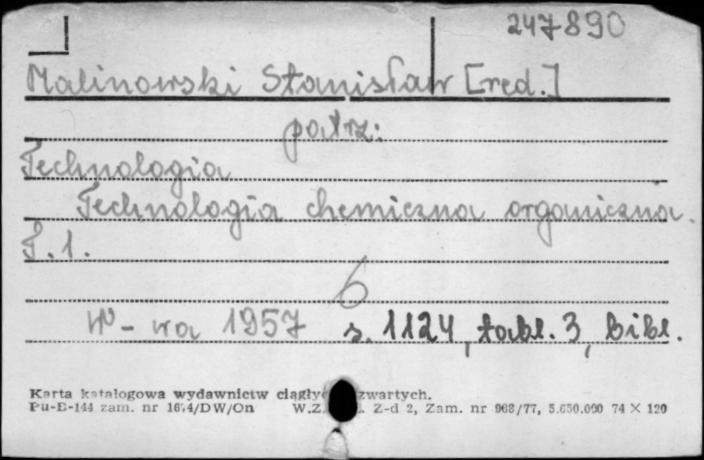 247890
Malinowski Stanisław [red.]
patrz:
Technologia
Technologia chemiczna organiczna.
T. 1.
6
W-wa 1957 s. 1124, tabl. 3, bibl.
Karta katalogowa wydawnictw ciągły zwartych.
Pu-B-144 zam. nr 1674/DW/On W.Z. Z-d 2, Zam. nr 968/77, 5.650.000 74 × 120